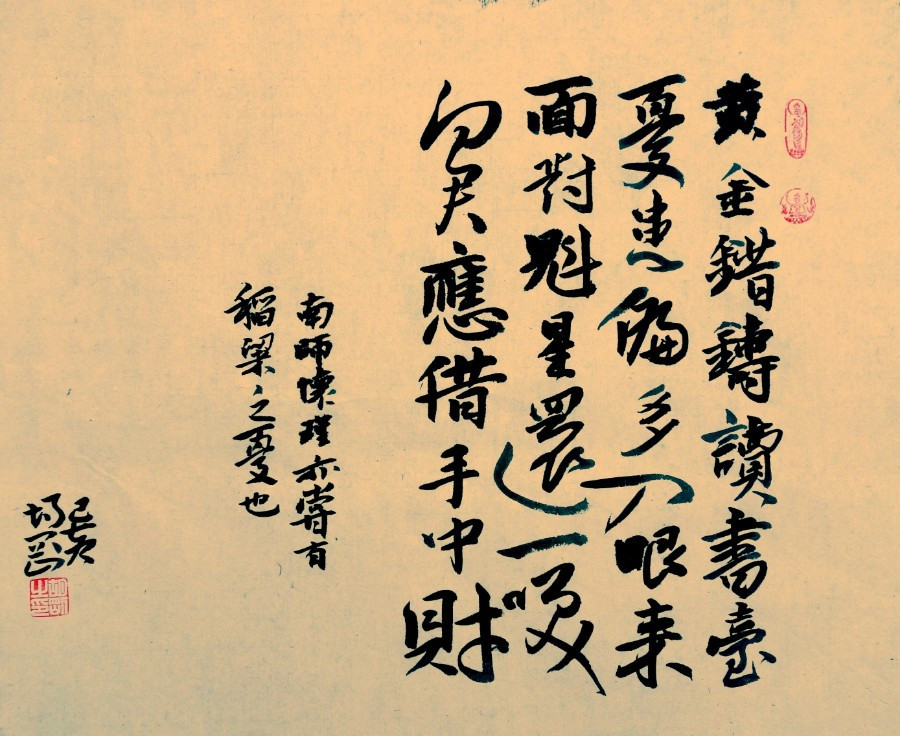 黄金錯鑄讀書臺
憂患偏多入眼来
面對魁星還一咲
向君應借手中財
南師懷瑾亦嘗有
稻粱之憂也
己亥